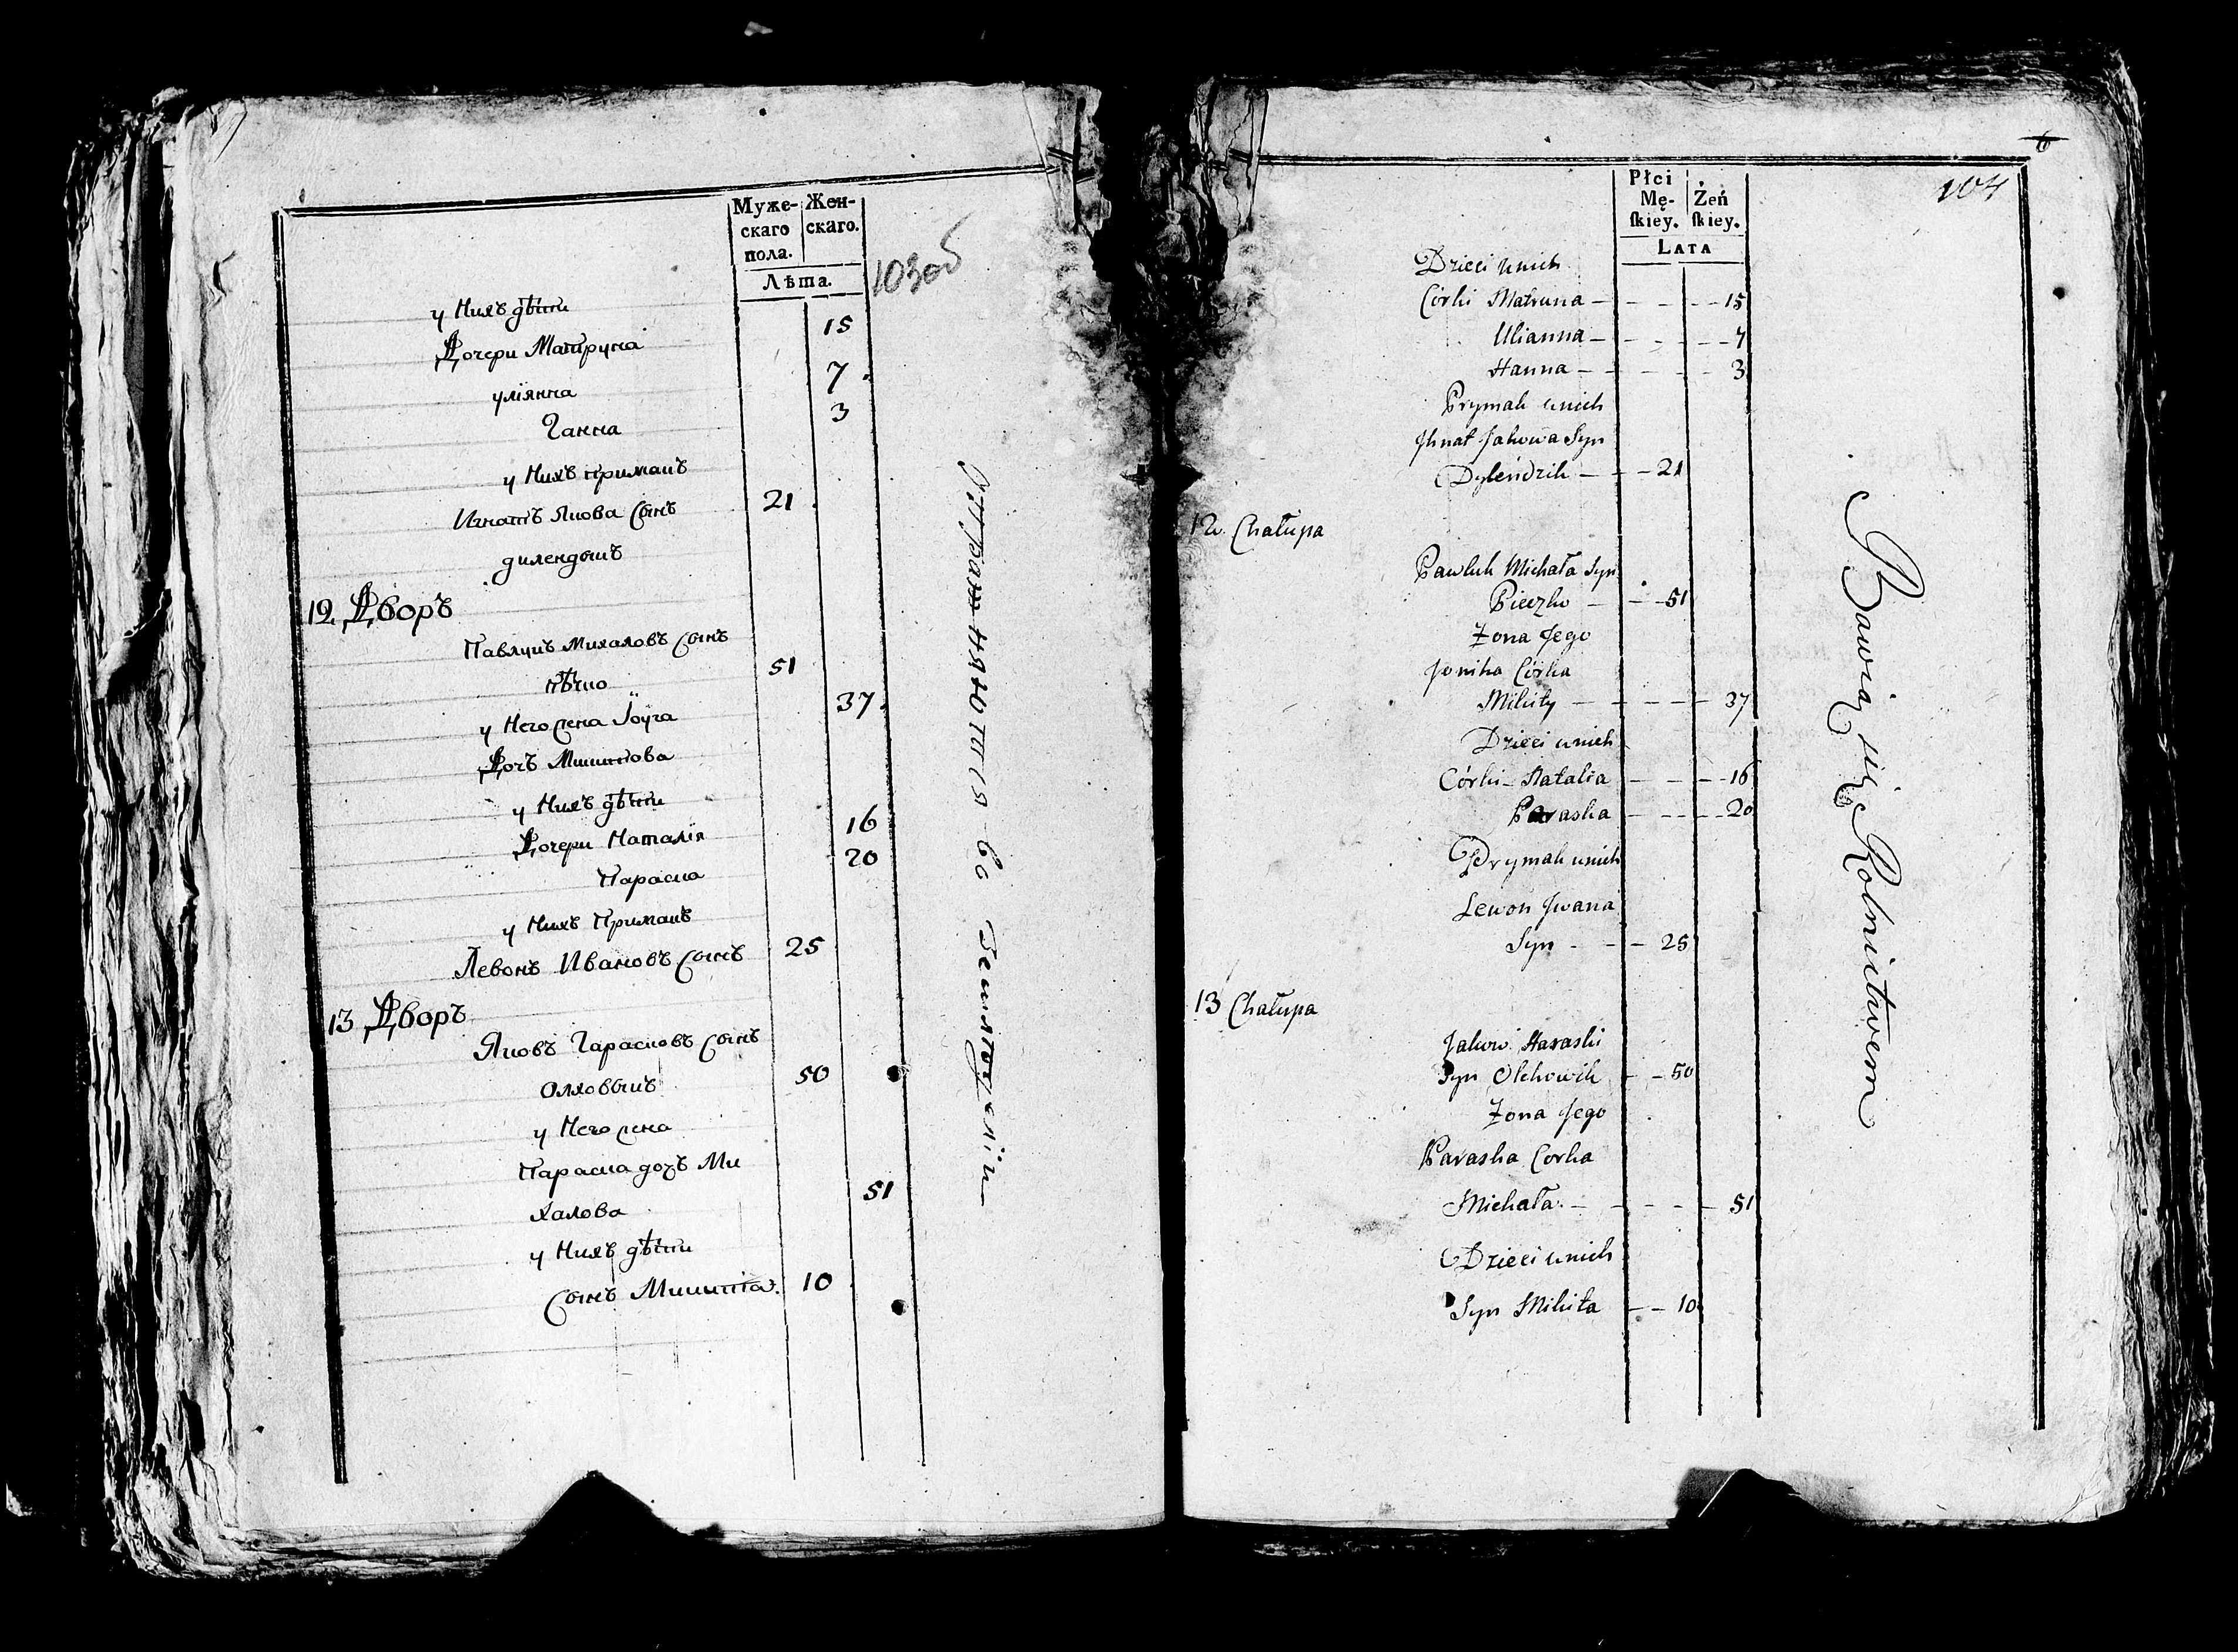 Муже-
скаго
пола.
Жен-
скаго.
Лѣта.
103об
у Нихъ дѣти
Дочери Матруна 15
улiянна 7
Ганна 3
у Нихъ примакъ
Игнатъ Якова Сынъ 21
дилендыкъ
12. Дворъ
Павлукъ Михаловъ Сынъ
пѣчко 51
у Него жена 37
Дочъ Микитова
у Нихъ дѣти
Дочери Наталiя 16
Параска 20
у Нихъ Примакъ
Левонъ Ивановъ Сынъ 25
13 Дворъ
Яковъ Гарасковъ Сынъ
олховыкъ 50
у Него жена
Параска дочъ Ми
халова 51
у Нихъ дѣти
Сынъ Микита 10
въ Земледѣлiи
6
104
Płci
Mę-
skiey.
Żeń
skiey.
LATA
Dzieci unich
Córki Matruna 15
Ulianna 7
Hanna 3
Prymak unich
Jhnat Jakowa Syn
Dyleńdzik 21
12. Chałupa
Pawluk Michała Syn
Pieczko 51
Żona Jego
Córka
Mikity 37
Dzieci unich
Córki Natalia 16
Paraska 20
Prymak unich
Lewon Jwana
Syn 25
13 Chałupa
Jakow Haraski
Syn Olchowik 50
Żona Jego
Paraska Corka
Michała 51
Dzieci unich
Syn Mikita 10
Bawią się Rolnitwem